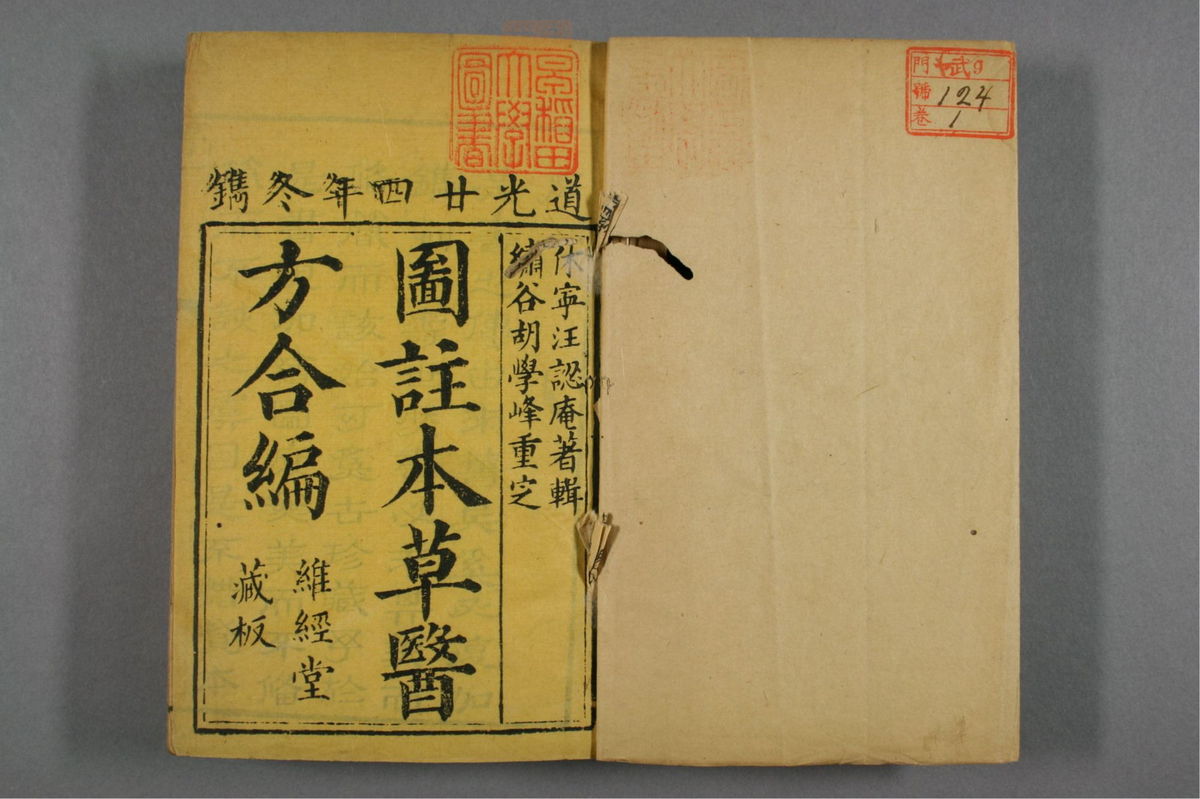 道光廿四年冬鐫
休寧汪認庵著輯
繡谷胡學峰重定
圖註本草醫
方合編
維經堂
藏板
早稻田
大學
圖書
門 武9
號 124
卷 1